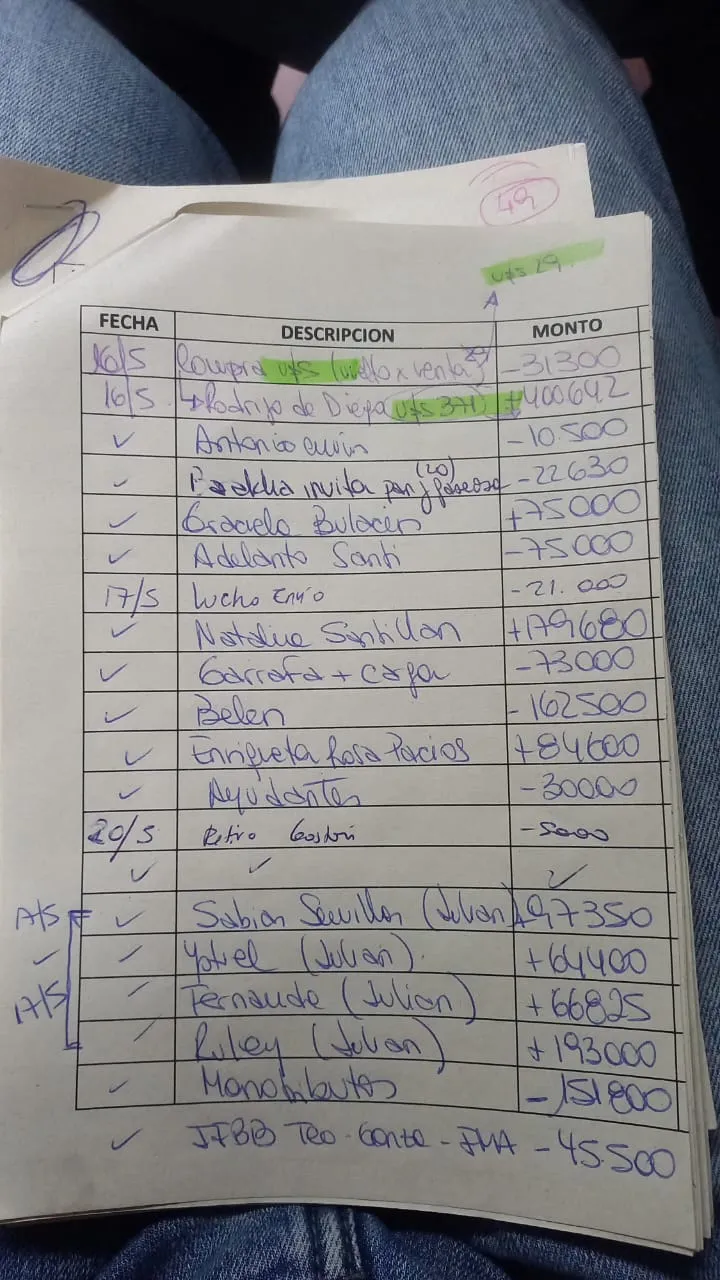 49
u$s 29
FECHA DESCRIPCION MONTO
16/5 Compra u$s (vuelto x venta) 29 -31300
16/5 ↳ Rodrigo de Diego (u$s 371) +400642
✓ Antonio -10.500
✓ invita pan y gaseosa (20) -22630
✓ Graciela Bulacios +75000
✓ Adelanto Santi -75000
17/5 Lucho Envio -21.000
✓ Natalia Santillan +179680
✓ Garrafa + Carga -73000
✓ Belen -162500
✓ Enriqueta Rosa Pacios +84600
✓ Ayudantes -30000
20/5 Retiro Gaston -5000
✓ ✓ ✓
17/5 ✓ Sevillan (Julian) +97350
✓ ✓ (Julian). +64400
17/5 (Julian) +66825
(Julian) +193000
✓ Monotributos -151800
✓ -45.500